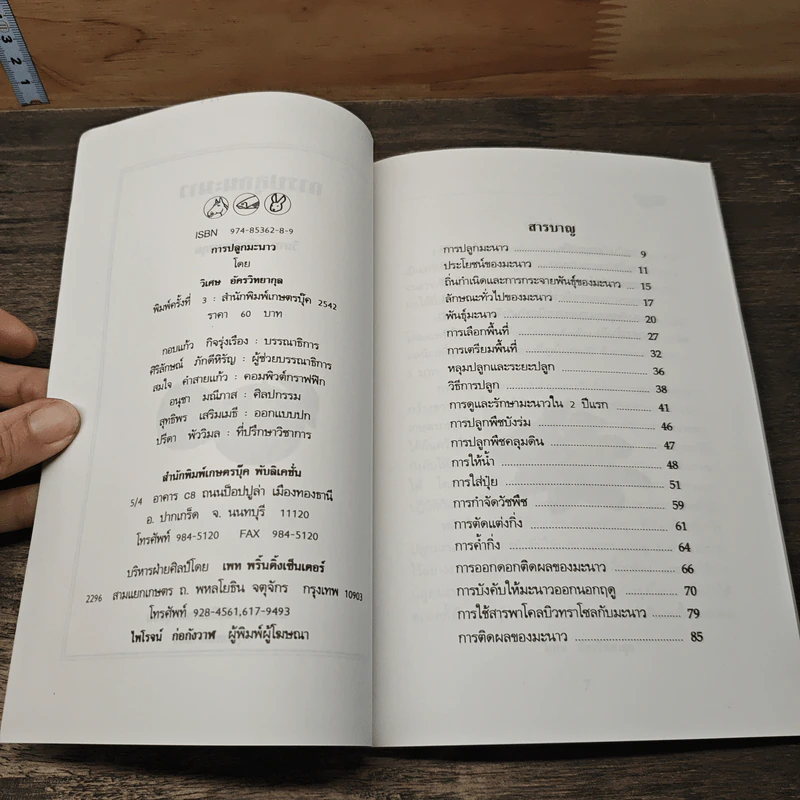 ISBN 974-85362-8-9
การปลูกมะนาว
โดย
วิเศษ อัครวิทยากุล
พิมพ์ครั้งที่ 3 : สำนักพิมพ์เกษตรบุ๊ค 2542
ราคา 60 บาท
กอบแก้ว กิจรุ่งเรือง : บรรณาธิการ
ศิริลักษณ์ ภักดีหิรัญ : ผู้ช่วยบรรณาธิการ
สมใจ คำสายแก้ว : คอมพิวต์กราฟฟิก
อนุชา มณีภาส : ศิลปกรรม
สุทธิพร เสริมเมธี : ออกแบบปก
ปรีดา พัววิมล : ที่ปรึกษาวิชาการ
สำนักพิมพ์เกษตรบุ๊ค พับลิเคชั่น
5/4 อาคาร C8 ถนนป็อปปูล่า เมืองทองธานี
อ. ปากเกร็ด จ. นนทบุรี 11120
โทรศัพท์ 984-5120 FAX 984-5120
บริหารฝ่ายศิลป์โดย เพท พริ้นคิ้งเซ็นเตอร์
2296 สามแยกเกษตร ถ. พหลโยธิน จตุจักร กรุงเทพ 10903
โทรศัพท์ 928-4561,617-9493
ไพโรจน์ ก่อกังวาฬ ผู้พิมพ์ผู้โฆษณา
สารบาญ
การปลูกมะนาว 9
ประโยชน์ของมะนาว 11
ถิ่นกำเนิดและการกระจายพันธุ์ของมะนาว 15
ลักษณะทั่วไปของมะนาว 17
พันธุ์มะนาว 20
การเลือกพื้นที่ 27
การเตรียมพื้นที่ 32
หลุมปลูกและระยะปลูก 36
วิธีการปลูก 38
การดูและรักษามะนาวใน 2 ปีแรก 41
การปลูกพืชบังร่ม 46
การปลูกพืชคลุมดิน 47
การให้น้ำ 48
การใส่ปุ๋ย 51
การกำจัดวัชพืช 59
การตัดแต่งกิ่ง 61
การค้ำกิ่ง 64
การออกดอกติดผลของมะนาว 66
การบังคับให้มะนาวออกนอกฤดู 70
การใช้สารพาโคลบิวทราโซลกับมะนาว 79
การติดผลของมะนาว 85